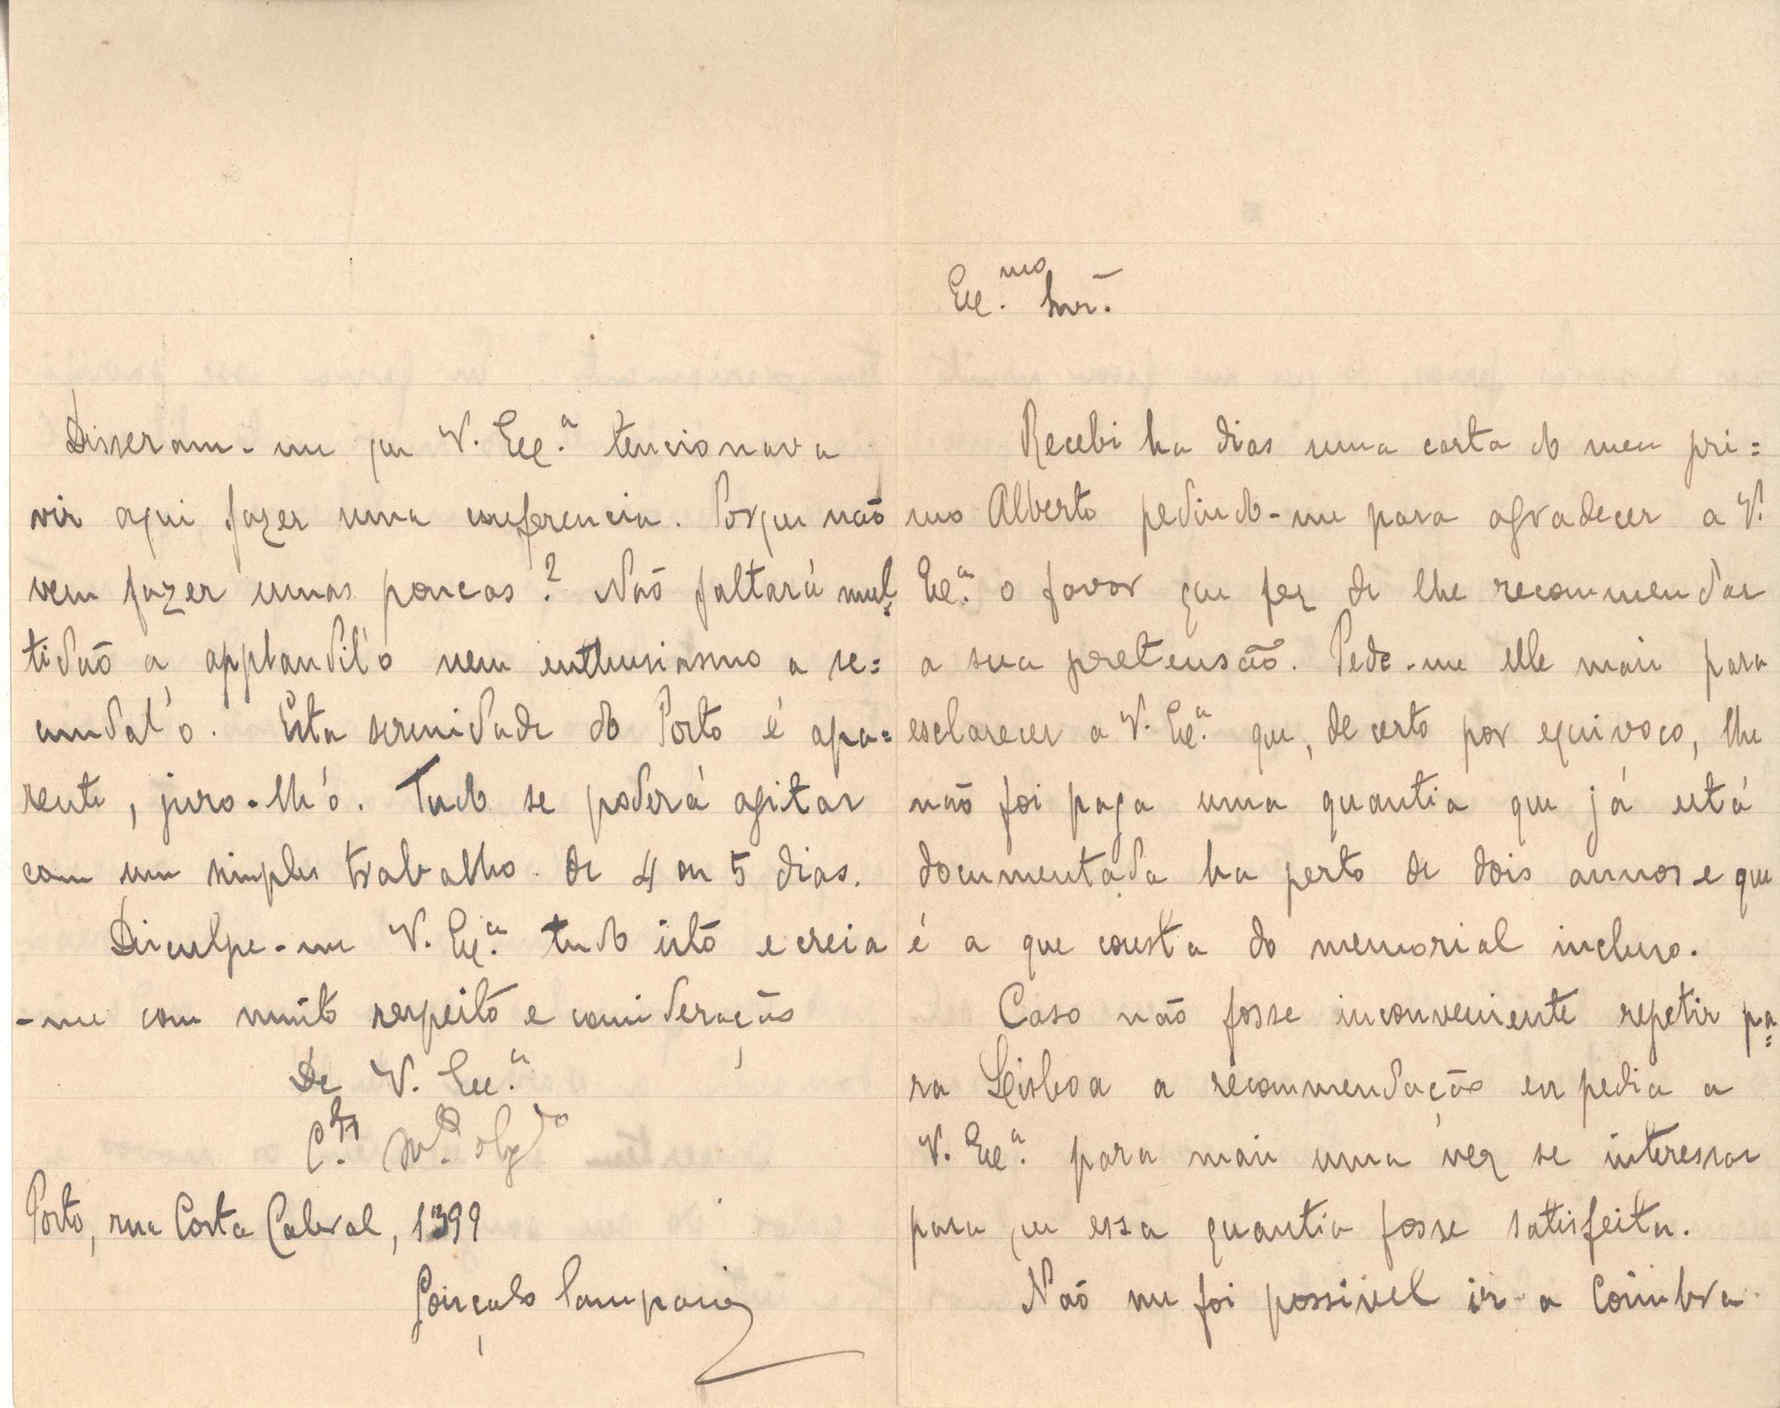 Exc.mo Snr.
Recebi ha dias uma carta do meu pri=
mo Alberto pedindo-me para agradecer a V.
Exc.a o favor que fez de lhe recommendar
a sua pretensão. Pede-me elle mais para
esclarecer a V. Exc.a que, de certo por equivoco, lhe
não foi paga uma quantia que já está
documentada ha perto de dois annos e que
é a que consta do memorial incluso.
Caso não fosse inconveniente repetir pa=
ra Lisboa a recommendação eu pedia a
V. Exc.a para mais uma vez se interessar
para que essa quantia fosse satisfeita.
Não me foi possivel ir a Coimbra
Disseram-me que V. Exc.a tencionava
vir aqui fazer uma conferencia. Porque não
vem fazer umas poucas? Não faltará mul=
tidão a applaudil'o nem enthusiasmo a se=
cundal'o. Esta serenidade do Porto é apa=
rente, juro-lh'o. Tudo se poderá agitar
com um simples trabalho de 4 ou 5 dias.
Disculpe-me V. Exc.a tudo isto e creia
-me com muito respeito e consideração
De V. Exc.a
C.do M.to obg.do
Porto, rua Costa Cabral, 1399
Gonçalo Sampaio